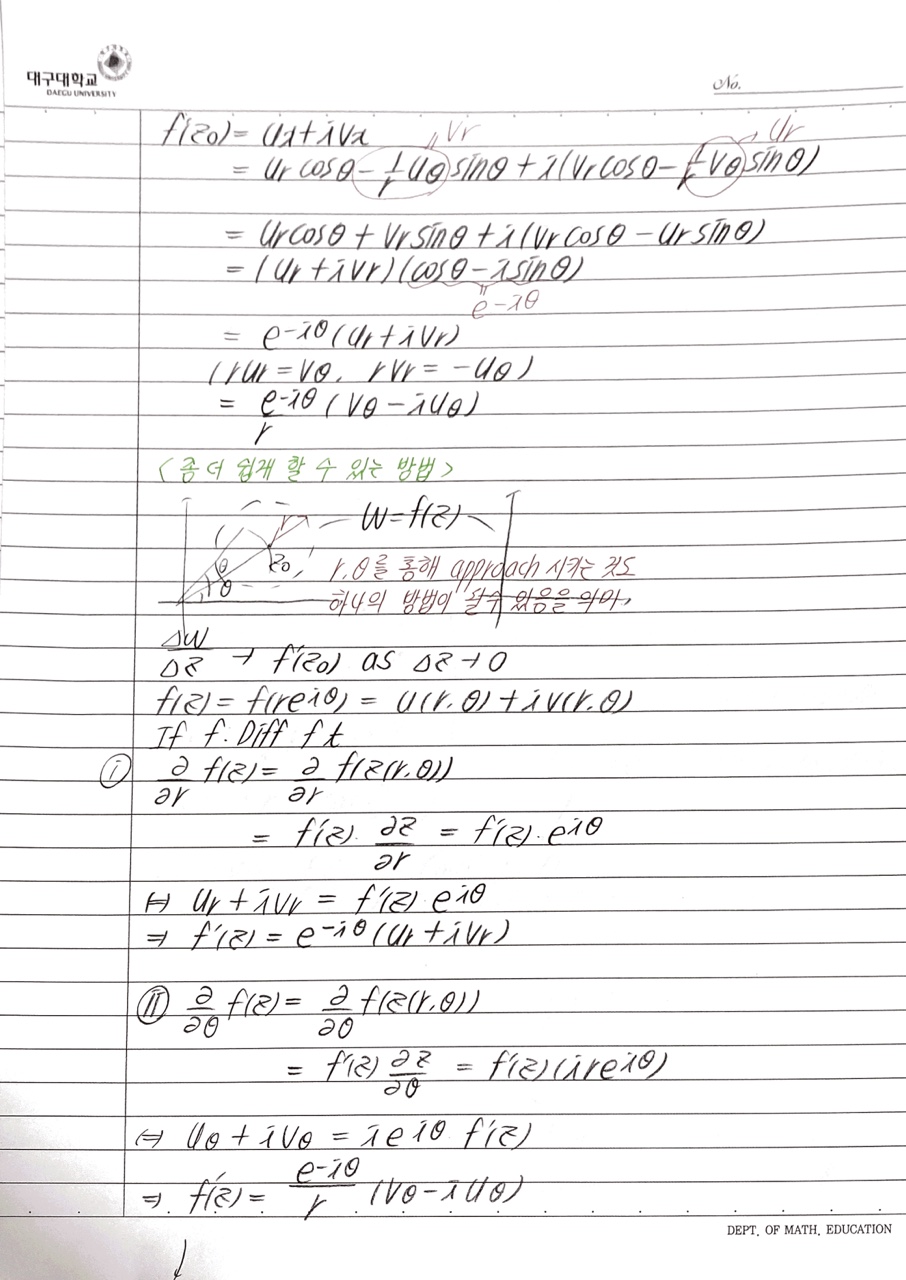 대구대학교
DAEGU UNIVERSITY
No.
f'(z₀) = Ux + iVx
= Ur cosθ - 1/r Uθ sinθ + i(Vr cosθ - 1/r Vθ sinθ)
" Vr
" Ur
= Ur cosθ + Vr sinθ + i(Vr cosθ - Ur sinθ)
= (Ur + iVr)(cosθ - i sinθ)
" e^-iθ
= e^-iθ (Ur + iVr)
(rUr = Vθ, rVr = -Uθ)
= e^-iθ/r (Vθ - iUθ)
<좀 더 쉽게 할 수 있는 방법>
W = f(z)
r
θ
z₀
θ
r.θ를 통해 approach 시키는 것도
하나의 방법이 될수 있음을 의미,
ΔW/Δz → f'(z₀) as Δz → 0
f(z) = f(re^iθ) = U(r.θ) + iV(r.θ)
If f. Diff ft
ⓘ ∂/∂r f(z) = ∂/∂r f(z(r.θ))
= f'(z). ∂z/∂r = f'(z). e^iθ
⇔ Ur + iVr = f'(z) e^iθ
⇒ f'(z) = e^-iθ (Ur + iVr)
ⓘⓘ ∂/∂θ f(z) = ∂/∂θ f(z(r.θ))
= f'(z) ∂z/∂θ = f'(z)(ire^iθ)
⇔ Uθ + iVθ = ie^iθ f'(z)
⇒ f'(z) = e^-iθ/r (Vθ - iUθ)
DEPT. OF MATH. EDUCATION